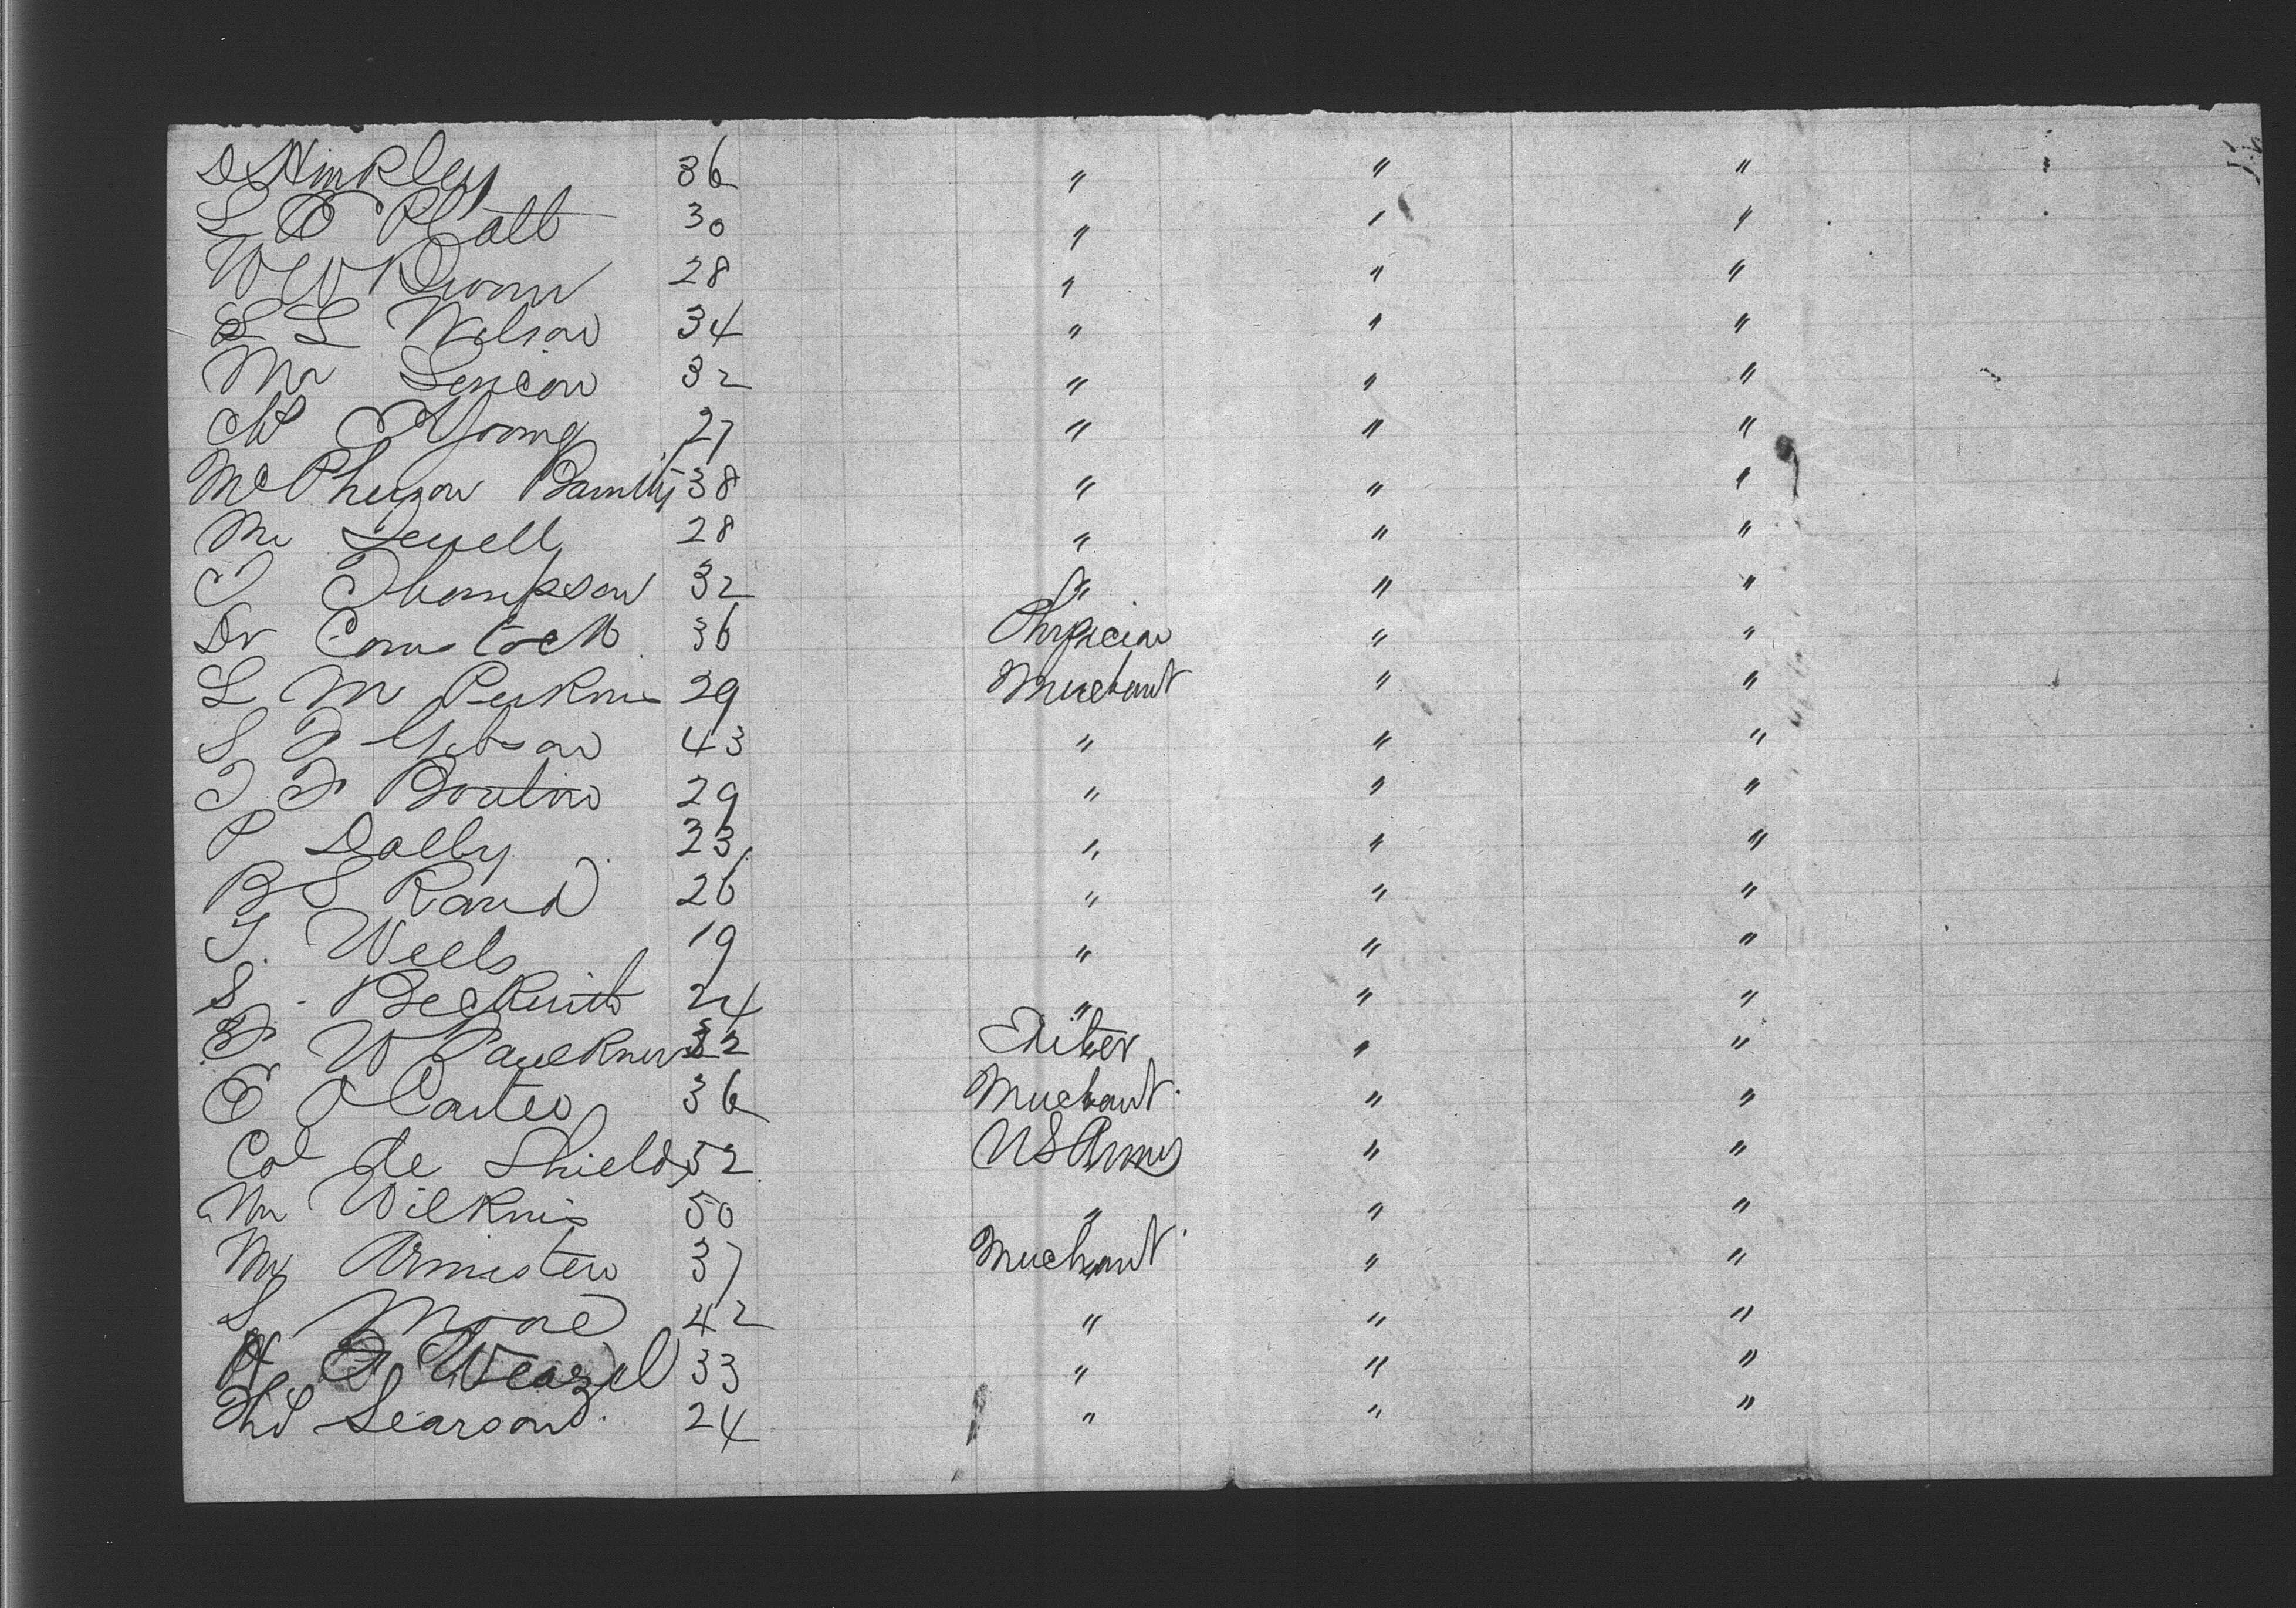 D Hinkley 36 " " "
L C Platt 30 " " "
W W 28 " " "
S L Wilson 34 " " "
Mr 32 " " "
Young 27 " " "
McPherson Family 38 " " "
Mr Sewell 28 " " "
T Thompson 32 " " "
Dr Comstock 36 Physician " "
L M Perkins 29 Merchant " "
S F Gibson 43 " " "
T F 29 " " "
P Dalby 23 " " "
B S Rand 26 " " "
T. Wells 19 " " "
S. Beckwith 24 " " "
F W Faulkner 32 Editer " "
E O Carter 36 Merchant " "
Col de Shields 52 US Army " "
Mr Wilkins 50 " " "
Mr Armisten 37 Merchant " "
S Moore 42 " " "
H F Weazel 33 " " "
Searson 24 " " "